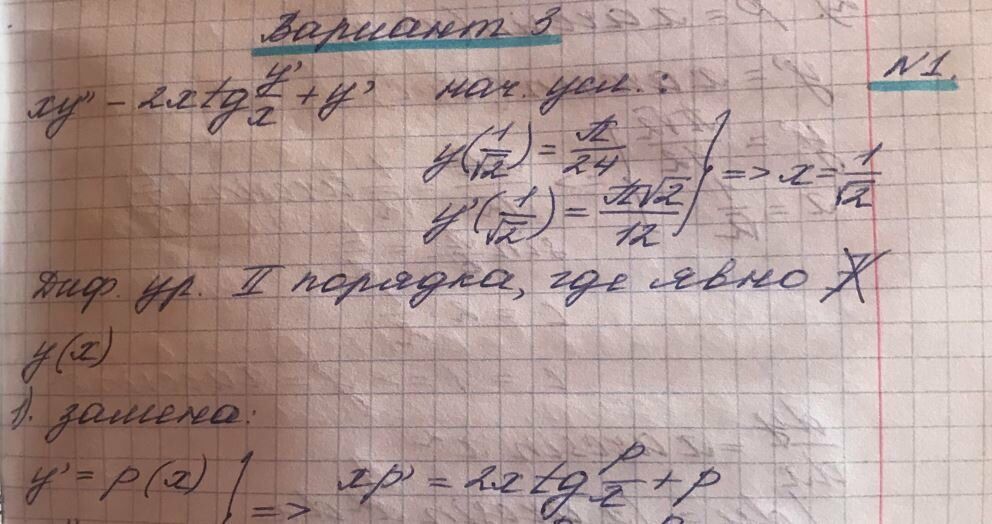 Вариант 3
N1.
xy'' - 2x tg y'/x + y' нач. усл.:
y(1/√2) = π/24
y'(1/√2) = π√2/12 } => x = 1/√2
Диф. ур. II порядка, где явно ∄
y(x)
1). замена:
y' = p(x) } => xp' = 2x tg p/x + p